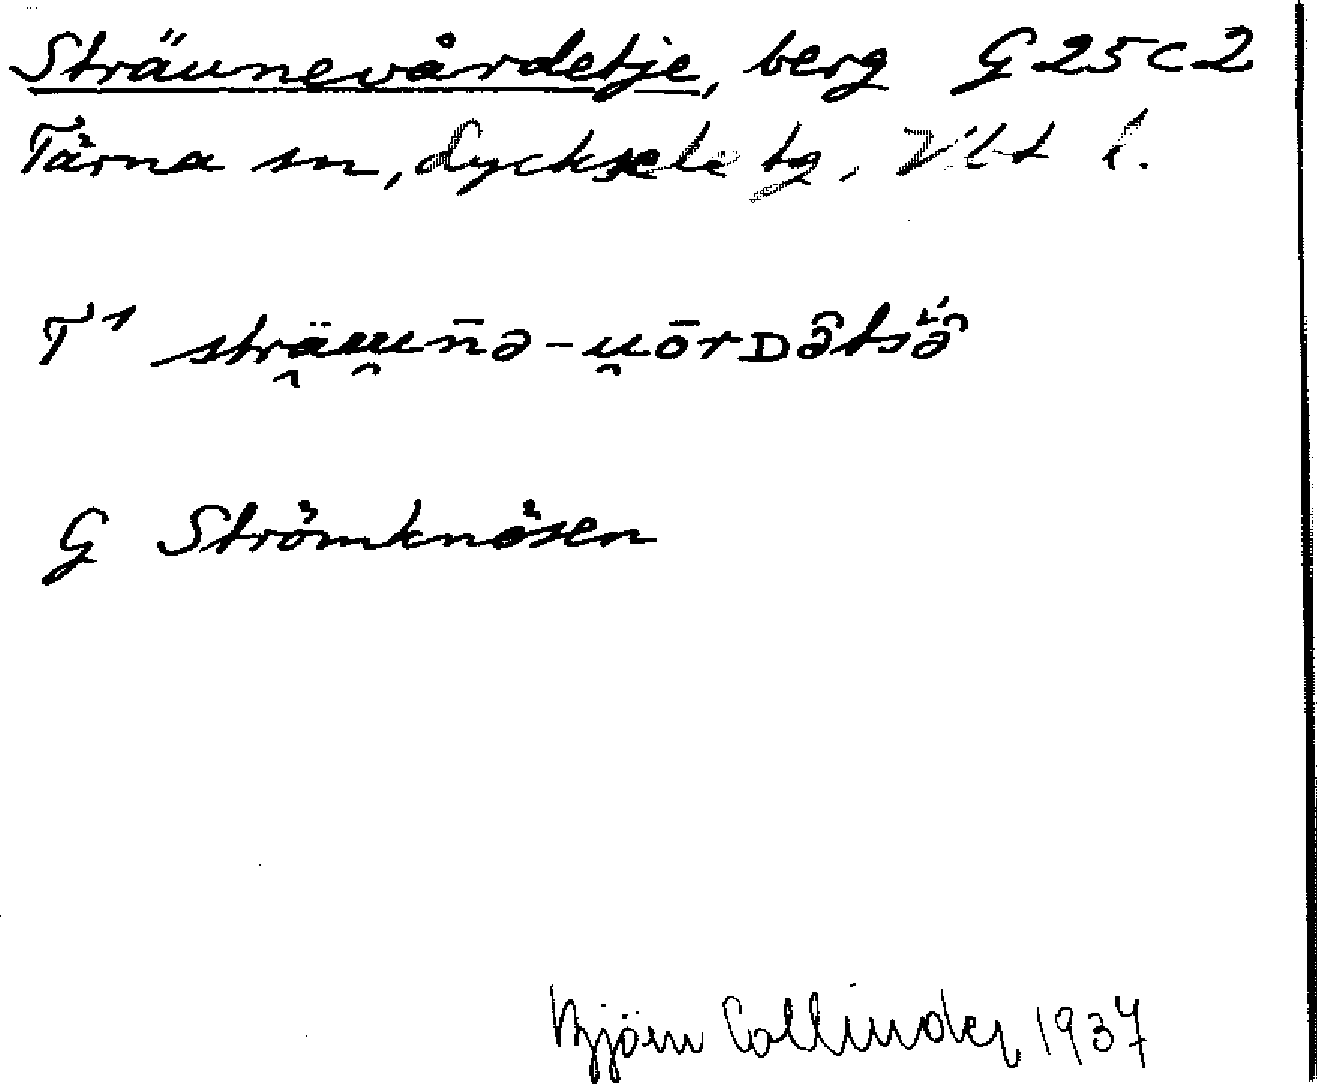 Sträunevårdetje, berg G25c2
Tärna sn, Lycksele tg, Vbt l.
T¹
G Strömknösen
Björn Collinder 1937